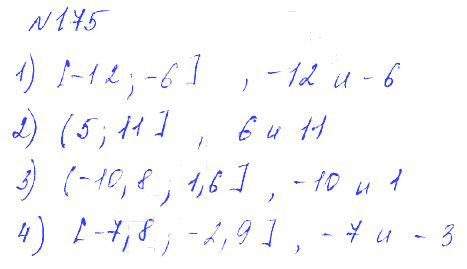 N175
1) [-12; -6], -12 и -6
2) (5; 11], 6 и 11
3) (-10,8; 1,6], -10 и 1
4) [-7,8; -2,9], -7 и -3